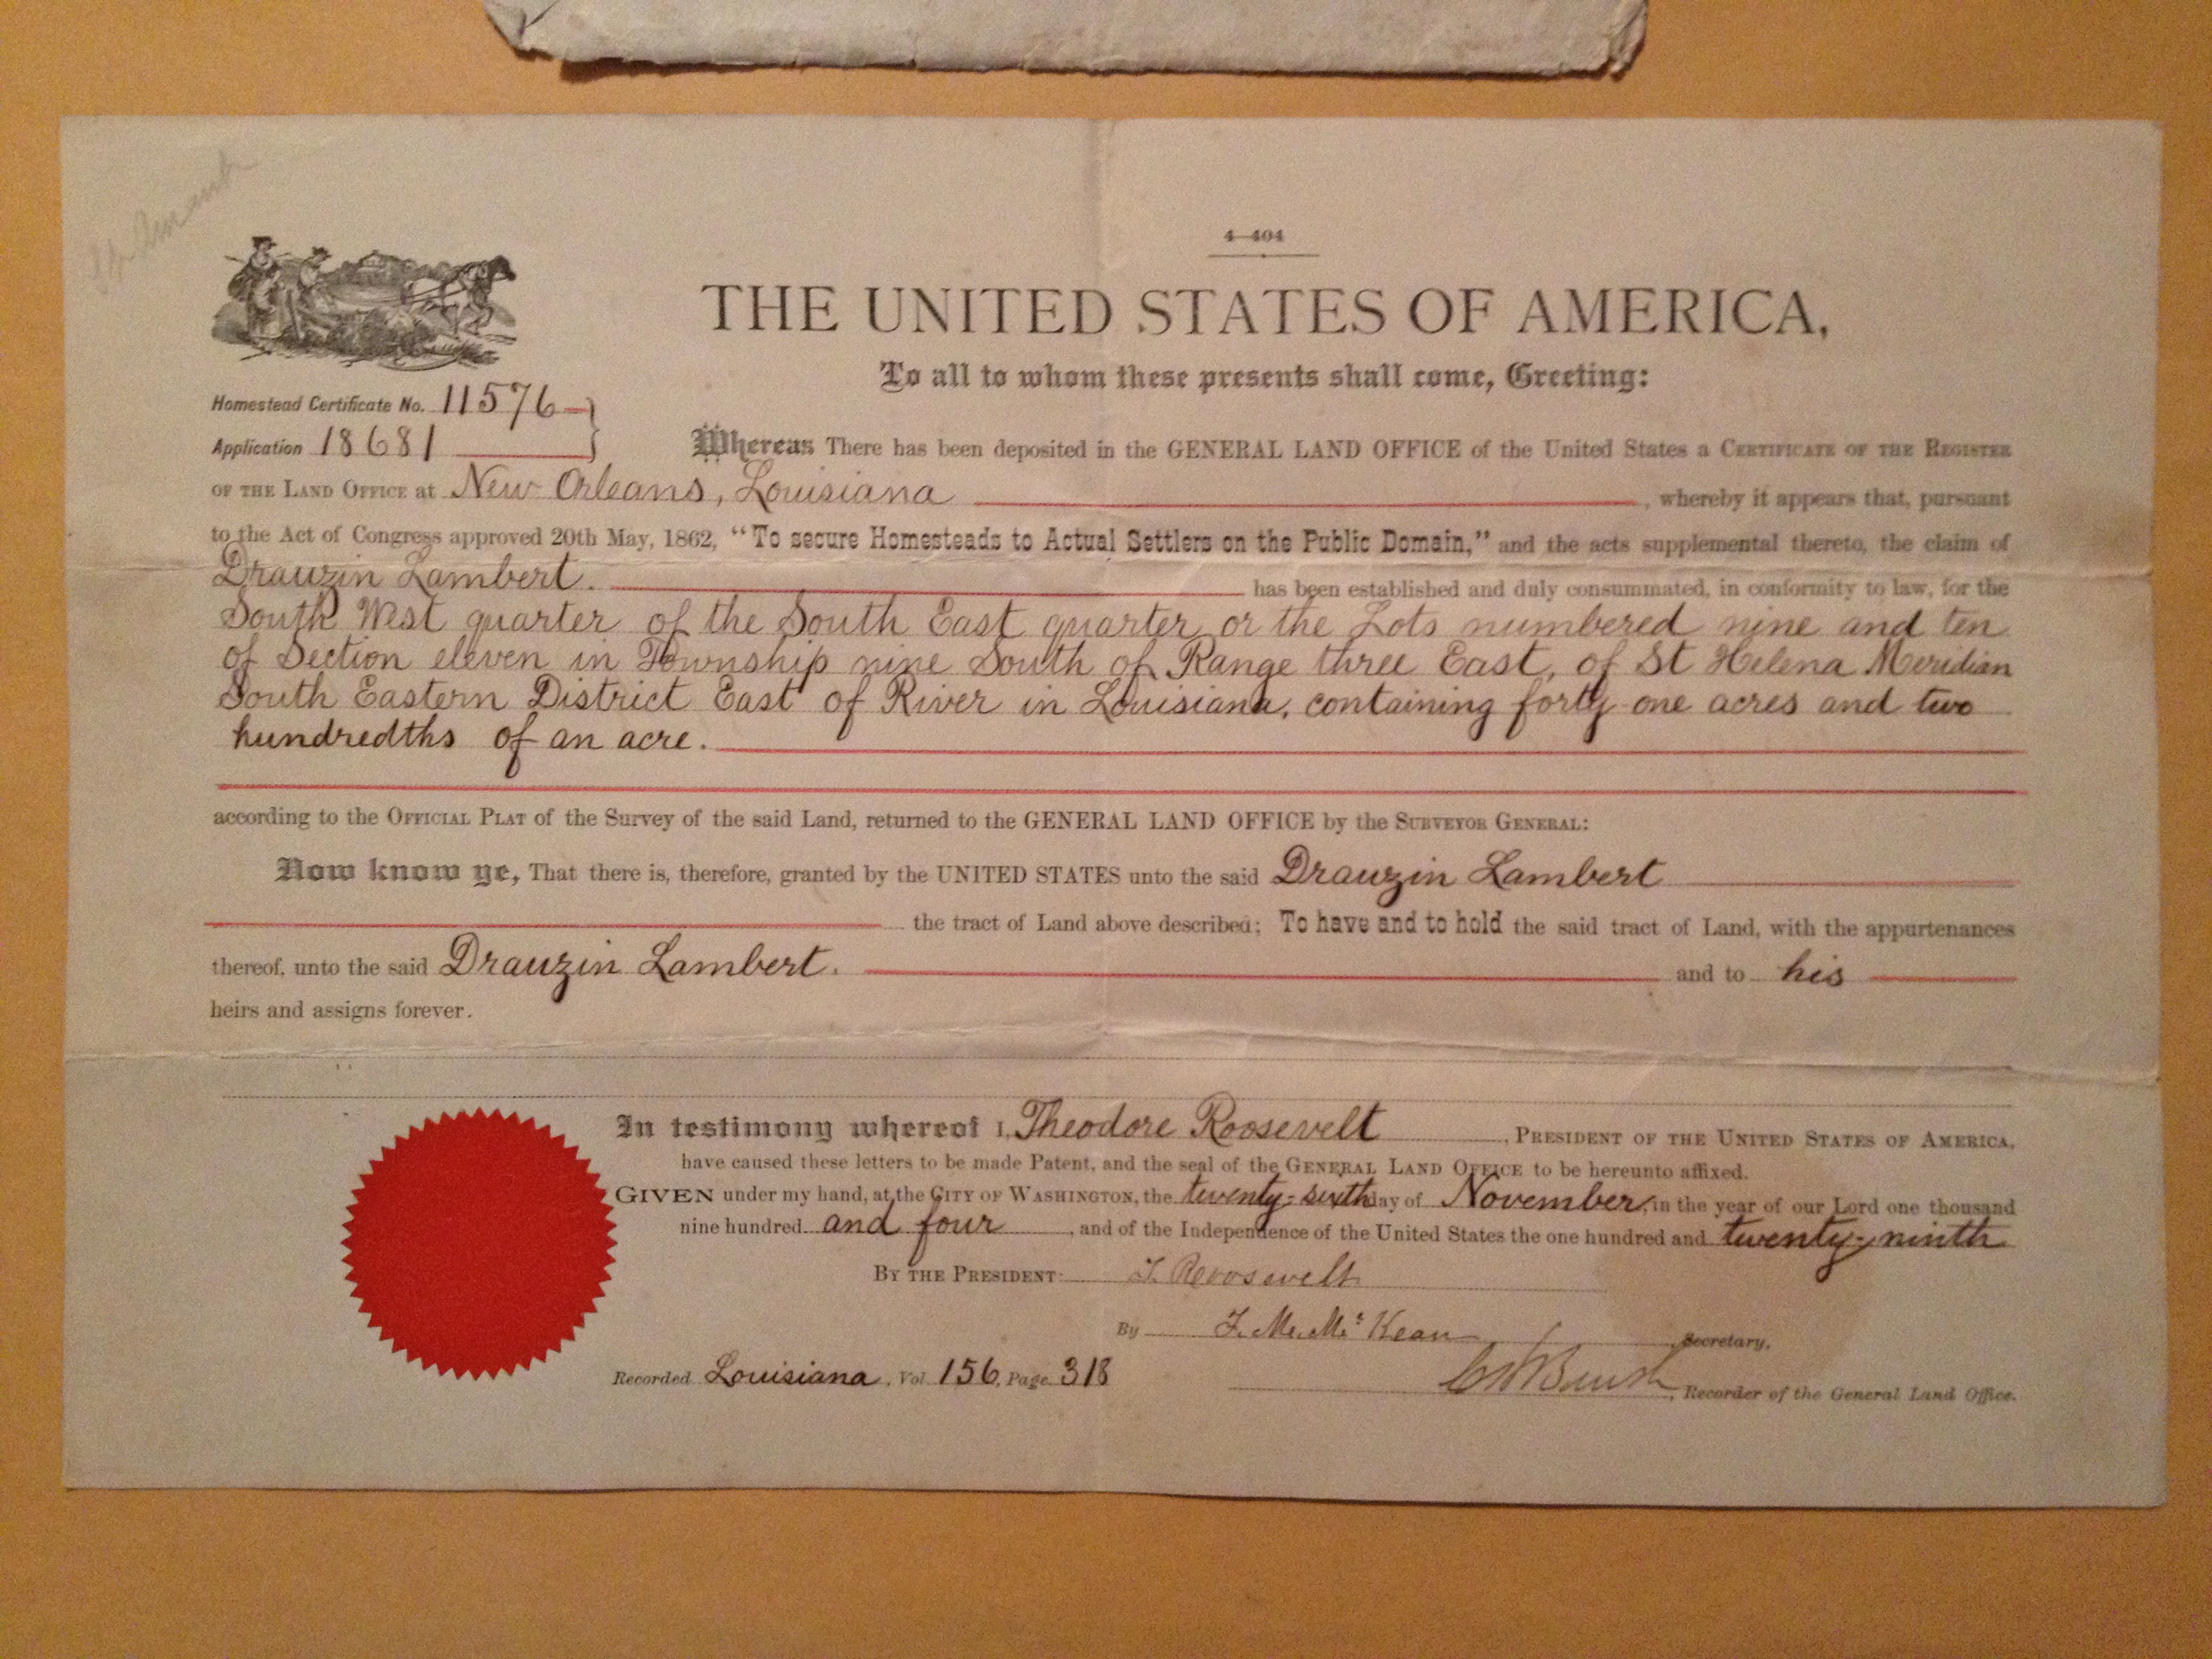 4—404
THE UNITED STATES OF AMERICA,
To all to whom these presents shall come, Greeting:
Homestead Certificate No. 11576
Application 18681
Whereas There has been deposited in the GENERAL LAND OFFICE of the United States a CERTIFICATE OF THE REGISTER
OF THE LAND OFFICE at New Orleans, Louisiana, whereby it appears that, pursuant
to the Act of Congress approved 20th May, 1862, "To secure Homesteads to Actual Settlers on the Public Domain," and the acts supplemental thereto, the claim of
Drauzin Lambert. has been established and duly consummated, in conformity to law, for the
South West quarter of the South East quarter or the Lots numbered nine and ten
of Section eleven in Township nine South of Range three East, of St Helena Meridian
South Eastern District East of River in Louisiana, containing forty one acres and two
hundredths of an acre.
according to the OFFICIAL PLAT of the Survey of the said Land, returned to the GENERAL LAND OFFICE by the SURVEYOR GENERAL:
Now know ye, That there is, therefore, granted by the UNITED STATES unto the said Drauzin Lambert
the tract of Land above described; To have and to hold the said tract of Land, with the appurtenances
thereof, unto the said Drauzin Lambert. and to his
heirs and assigns forever.
In testimony whereof I, Theodore Roosevelt, PRESIDENT OF THE UNITED STATES OF AMERICA,
have caused these letters to be made Patent, and the seal of the GENERAL LAND OFFICE to be hereunto affixed.
GIVEN under my hand, at the CITY OF WASHINGTON, the twenty-sixth day of November, in the year of our Lord one thousand
nine hundred and four, and of the Independence of the United States the one hundred and twenty-ninth
BY THE PRESIDENT: T. Roosevelt
By F. M. McKean Secretary.
Recorded Louisiana, Vol. 156, Page 318
Recorder of the General Land Office.